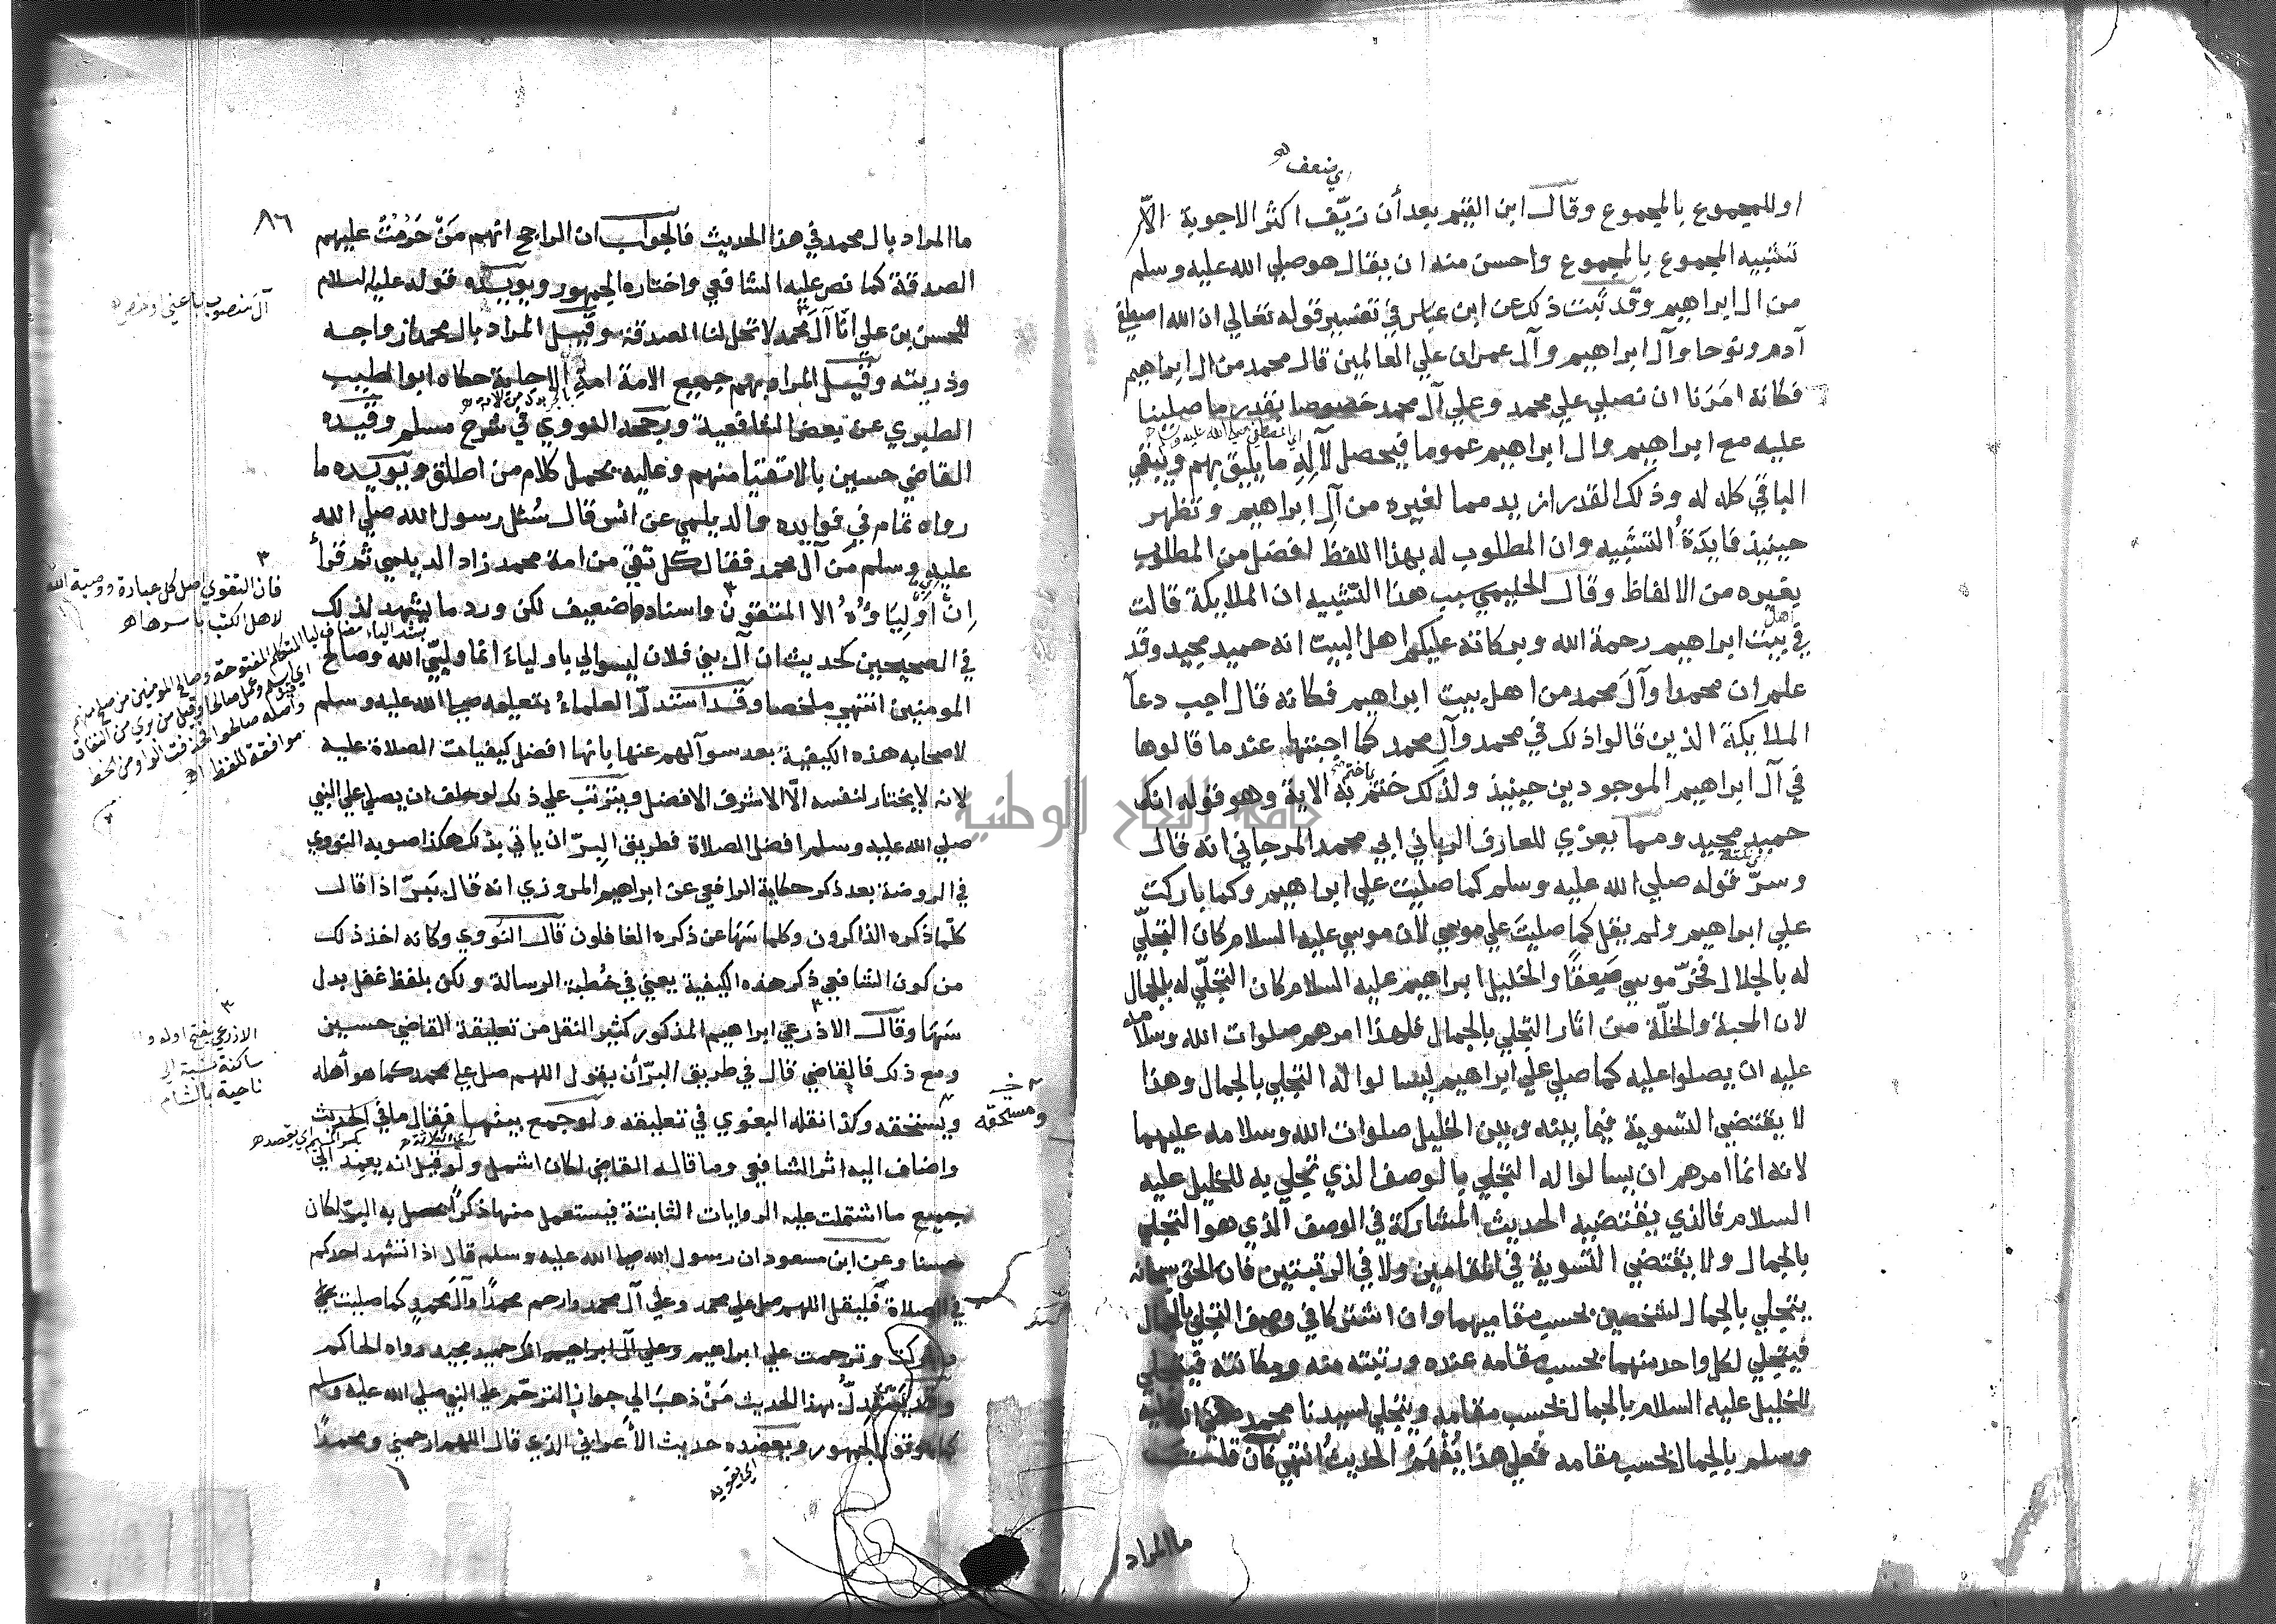 اي ضعف
او للمجموع بالمجموع وقال ابن القيم بعد أن زيّف اكثر الاجوبة الّا
تشبيه المجموع بالمجموع واحسن منه ان يقال هو صلي الله عليه وسلم
من ال ابراهيم وقد ثبت ذلك عن ابن عباس في تفسير قوله تعالي ان الله اصطفي
آدم ونوحا وآل ابراهيم وآل عمران علي العالمين قال محمد من ال ابراهيم
فكانه امَرَنا ان نصلي علي محمد وعلي آل محمد خصوصا بقدر ما صلينا
عليه مع ابراهيم وال ابراهيم عموما فيحصل لآلِهِ ما يليق بهم ويبقي
الباقي كله له وذلك القدر ازيد مما لغيره من آل ابراهيم وتظهر
حينيذ فايدَةُ التشبيه وان المطلوب له بهذا اللفظ افضل من المطلوب
بغيره من الالفاظ وقال الحليمي سبب هذا التشبيه ان الملايكة قالت
في بيت ابراهيم رحمة الله وبركاته عليكم اهل البيت انه حميد مجيد وقد
علم ان محمدا وآلَ محمد من اهل بيت ابراهيم فكانه قال اجب دعآ
الملايكة الذين قالوا ذلك في محمد وآل محمد كما اجبتها عند ما قالوها
في آل ابراهيم الموجودين حينيذ ولذلك ختم به الاية وهو قوله انك
حميد مجيد ومما يعزي للعارف الرباني ابي محمد المرجاني انه قال
وسرّ قوله صلي الله عليه وسلم كما صليت علي ابراهيم وكما باركت
علي ابراهيم ولم يقل كما صليتَ علي موسي لان موسي عليه السلام كان التجلّي
له بالجلال فخرّ موسي صَعِقًا والخليل ابراهيم عليه السلام كان التجلّي له بالجمال
لان المحبة والخلّة من اثار التجلي بالجمال فلهذا امرهم صلوات الله وسلامه
عليه ان يصلوا عليه كما صلي علي ابراهيم ليسالوا له التجلي بالجمال وهذا
لا يقتضي التسوية فيما بينه وبين الخليل صلوات الله وسلامه عليهما
لانه انما امرهم ان يسالوا له التجلي بالوصف الذي تجلي به للخليل عليه
السلام فالذي يقتضيه الحديث المشاركة في الوصف الذي هو التجلي
بالجمال ولا يقتضي التسوية في المقامين ولا في الرتبتين فان الحق سبحانه
يتجلي بالجمال لشخصين بحسب مقاميهما وان اشتركا في وصف التجلي بالجمال
فيتجلي لكل واحد منهما بحسب مقامه عنده ورتبته منه ومكانته فيتجلي
للخليل عليه السلام بالجمال بحسب مقامه ويتجلي لسيدنا محمد صلي الله عليه
وسلم بالجمال بحسب مقامه فعلي هذا يُفهَمُ الحديثُ انتهي فان قلت
ما المراد
٨٦
ما المراد بال محمد في هذا الحديث فالجواب ان الراجح انهم مَنْ حَرُمَتْ عليهم
الصدقة كما نص عليه الشافعي واختاره الجمهور ويويده قوله عليه السلام
للحسن بن علي انّا آلَ محمد لا تحل لنا الصدقة وقيل المراد بال محمد ازواجه
وذريته وقيل المراد بهم جميع الامة امةِ الاجابة حكاه ابو الطيب
الطبري عن بعض الشافعية ورجحه النووي في شرح مسلم وقيده
القاضي حسين بالاتقيا منهم وعليه يحمل كلام من اطلق ويويده ما
رواه تمام في فوايده والديلمي عن انس قال سُئل رسول الله صلي الله
عليه وسلم مَن آل محمد فقال كل تقي من امة محمد زاد الديلمي ثم قرأ
اِنْ اَوْلِيَاؤُهُ الا المتقون واسناده ضعيف لكن ورد ما يشهد لذلك
في الصحيحين كحديث ان آل بني فلان ليسوا لي باولياءَ انما وليّي الله وصالح
المومنين انتهي ملخصا وقد استدلّ العلماءُ بتعليمه صلي الله عليه وسلم
لاصحابه هذه الكيفية بعد سوآلهم عنها بانها افضل كيفيات الصلاة عليه
لانه لا يختار لنفسه الّا الاشرف الافضل ويترتب علي ذلك لو حلف ان يصلي علي النبي
صلي الله عليه وسلم افضل الصلاة فطريق البِرّ ان ياتي بذلك هكذا صوبه النووي
في الروضة بعد ذكر حكاية الرافعي عن ابراهيم المروزي انه قال يَبَرّ اذا قال
كلّما ذكره الذاكرون وكلما سَهَا عن ذكره الغافلون قال النووي وكانه اخذ ذلك
من كون الشافعي ذكر هذه الكيفية يعني في خُطبة الرسالة ولكن بلفظ غفل بدل
سَهَا وقال الاذرعي ابراهيم المذكور كثير النقل من تعليقة القاضي حسين
ومع ذلك فالقاضي قال في طريق البرّ أن يقول اللهم صل علي محمد كما هو أهله
ويستحقه وكذا نقله البغوي في تعليقه ولو جمع بينها فقال ما في الحديث
واضاف اليه اثر الشافعي وما قاله القاضي لكان اشمل ولو قيل انه يعمِد الي
جميع ما اشتملت عليه الروايات الثابتة فيستعمل منها ذكرًا يحصل به البرّ لكان
حسنا وعن ابن مسعود ان رسول الله صلي الله عليه وسلم قال اذا تشهد احدكم
في الصلاة فليقل اللهم صل علي محمد وعلي آل محمد وارحم محمدًا وآلَ محمدٍ كما صليت
وباركت وترحمت علي ابراهيم وعلي آل ابراهيم انك حميد مجيد رواه الحاكم
وقد يَسْتَدِلّ بهذا الحديث مَنْ ذهبَ الي جواز الترحّم علي النبي صلي الله عليه وسلم
كما هو قول الجمهور ويعضده حديث الأعرابي الذي قال اللهم ارحمني ومحمدًا
اي يقويه
آلَ منصوب باعني او اخص
فان التقوي اصل كل عبادة ووصية الله
لاهل الكتب باسرها اهـ
بشد الياء مضاف لياء المتكلم المفتوحة وصالح المومنين من صلح منهم
اي اسلم وعمل صالحا وقيل من بري من النفاق
واصله صالحوا فحذفت الواو من الخط
موافقة للفظ اهـ
الاذرعي بفتح اوله
ساكنة نسبة الي
ناحية بالشام
بكسر الميم اي يقصد اهـ
ومستحقه
جامعة النجاح الوطنية